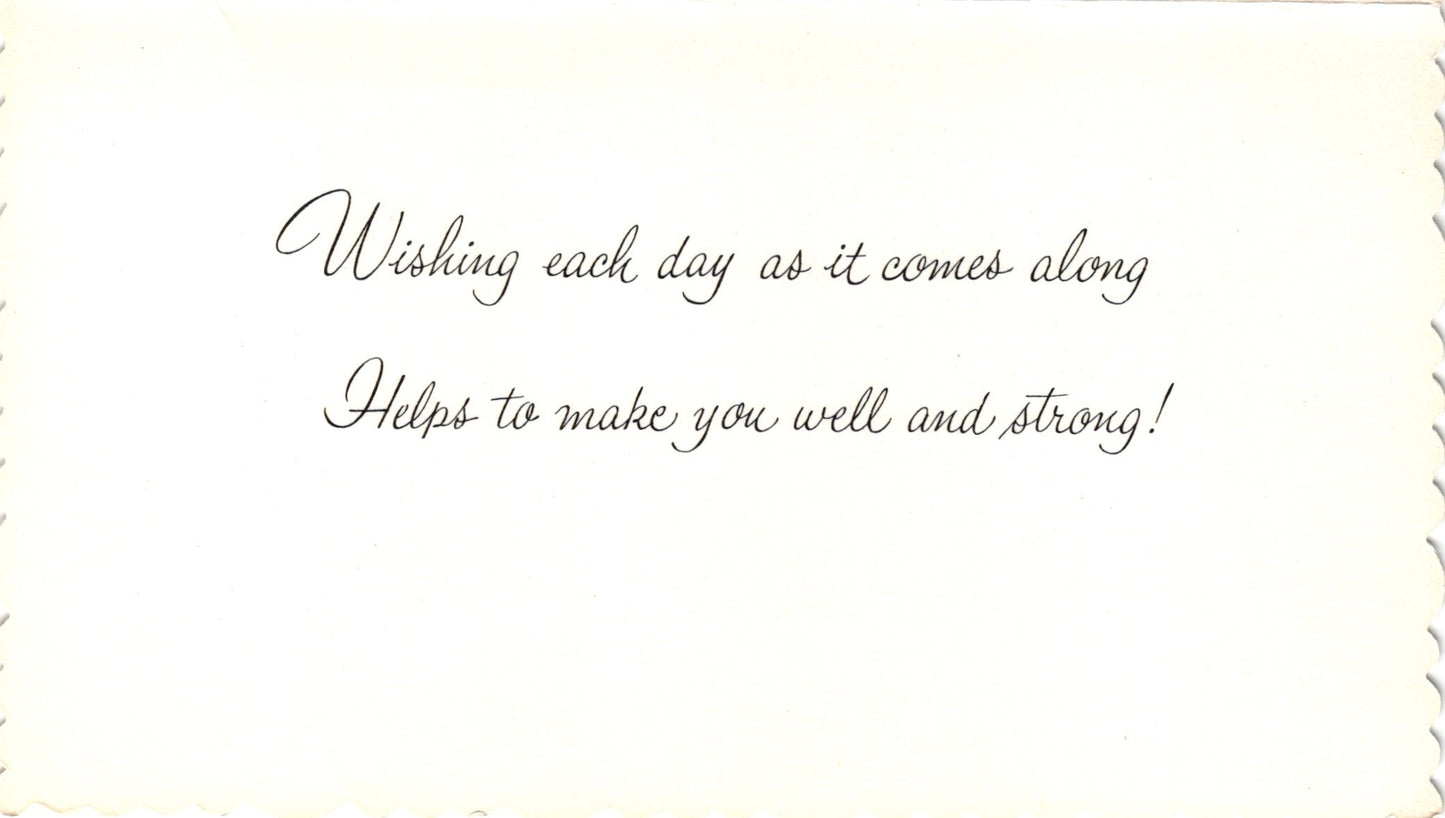 Wishing each day as it comes along
Helps to make you well and strong!